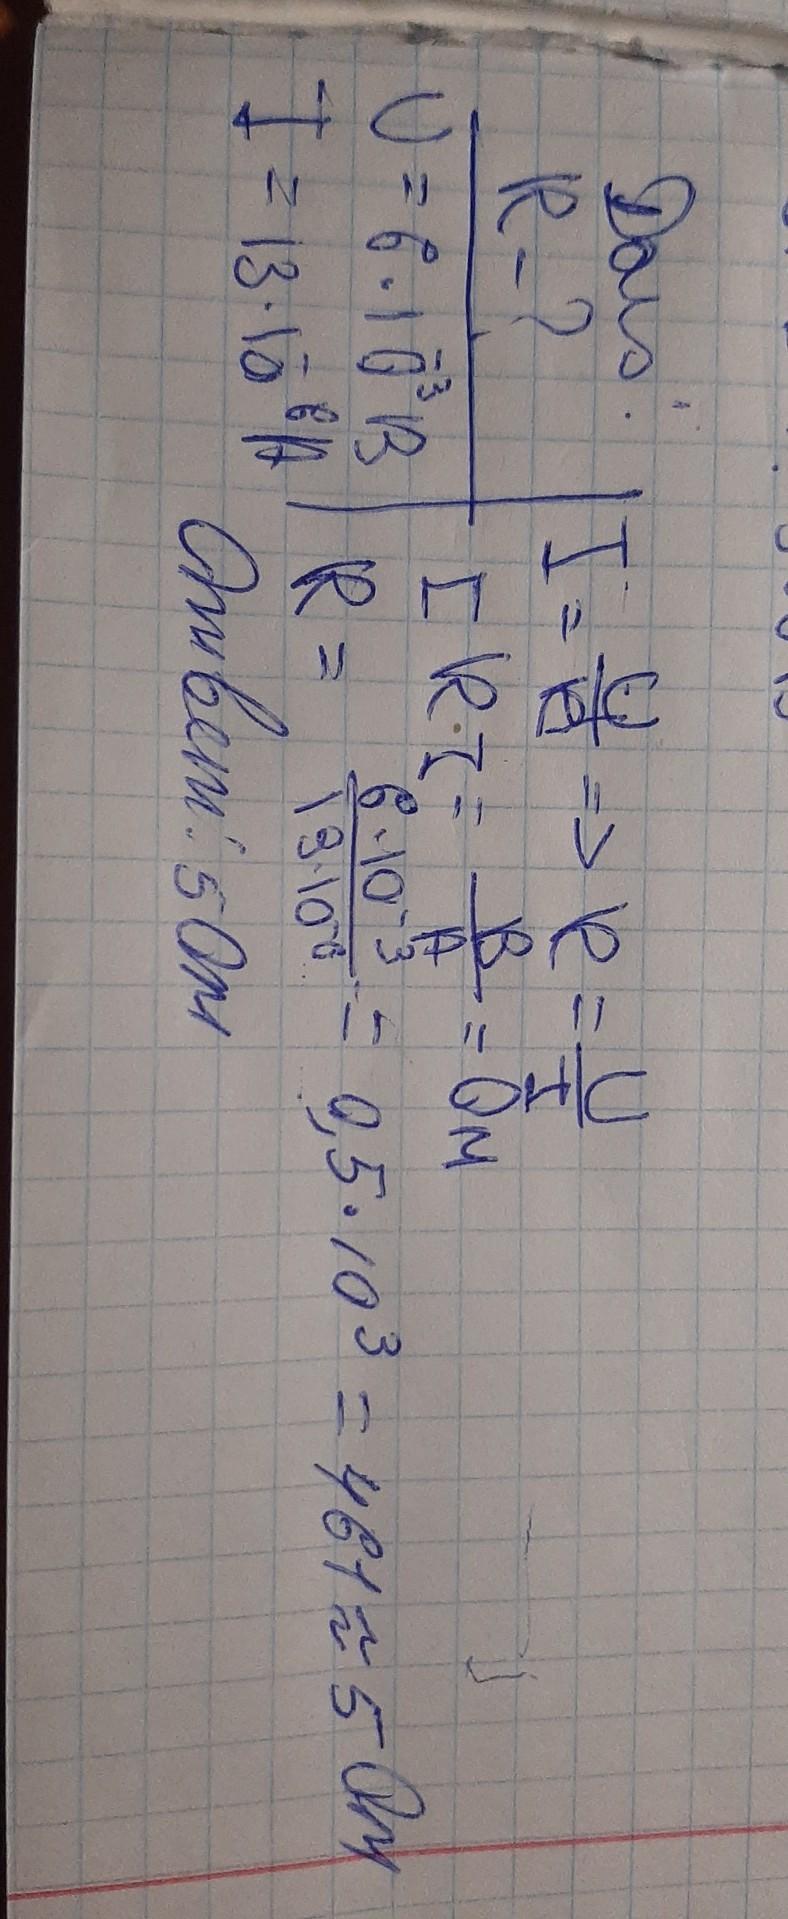 Дано:
R - ?
U = 6 · 10⁻³ В
I = 13 · 10⁻⁶ А
I = U/R => R = U/I
[R] = В/А = Ом
R = 6·10⁻³/13·10⁻⁶ = 0,5 · 10³ = 461 ≈ 5 Ом
Ответ: 5 Ом